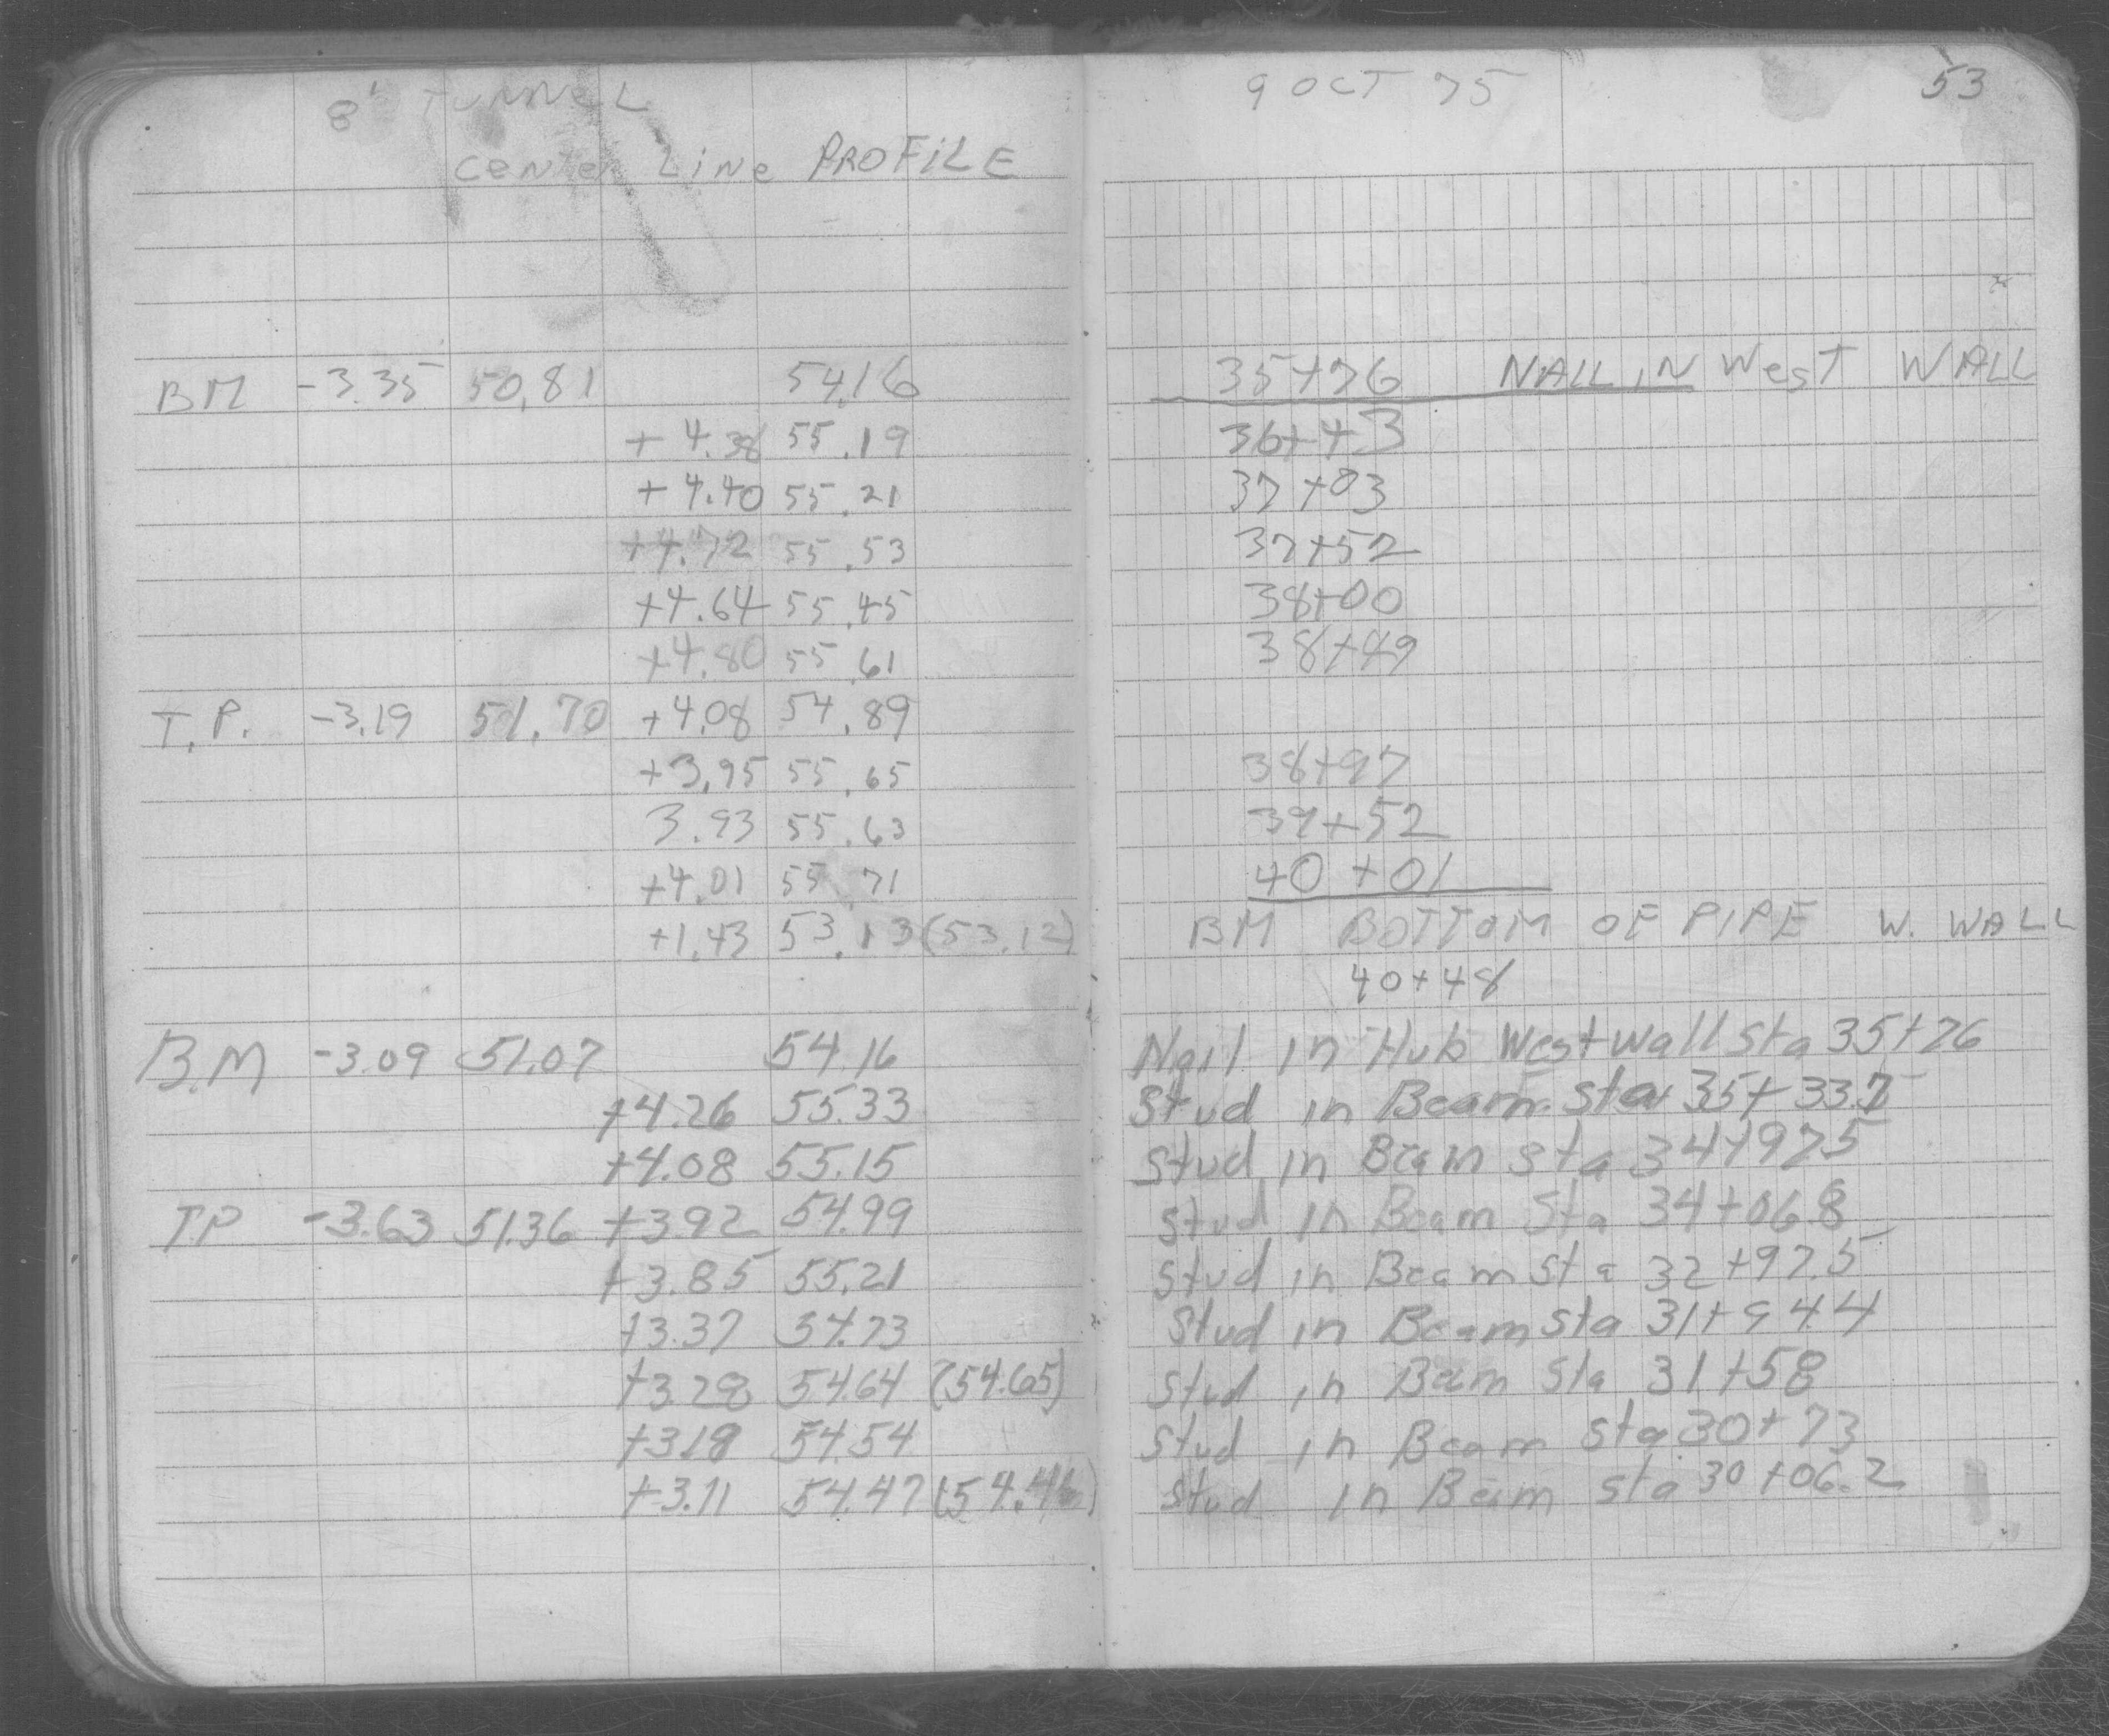 8' TUNNEL
CENTER LINE PROFILE
9 OCT 75
53
BM -3.35 50.81 54.16 35+76 NAIL IN West WALL
+4.38 55.19 36+43
+4.40 55.21 37+03
+4.72 55.53 37+52
+4.64 55.45 38+00
+4.80 55.61 38+49
T.P. -3.19 51.70 +4.08 54.89
+3.95 55.65 38+97
3.93 55.63 39+52
+4.01 55.71 40+01
+1.43 53.13 (53.12) BM BOTTOM OF PIPE W. WALL
40+48
B.M -3.09 51.07 54.16 Nail in Hub West wall sta 35+76
+4.26 55.33 Stud in Beam sta 35+33.7
+4.08 55.15 Stud in Beam sta 34+97.5
TP -3.63 51.36 +3.92 54.99 Stud in Beam Sta 34+06.8
+3.85 55.21 Stud in Beam sta 32+97.5
+3.37 54.73 Stud in Beam sta 31+94.4
+3.28 54.64 (54.65) Stud in Beam Sta 31+58
+3.18 54.54 Stud in Beam Sta 30+73
+3.11 54.47 (54.46) Stud in Beam sta 30+06.2